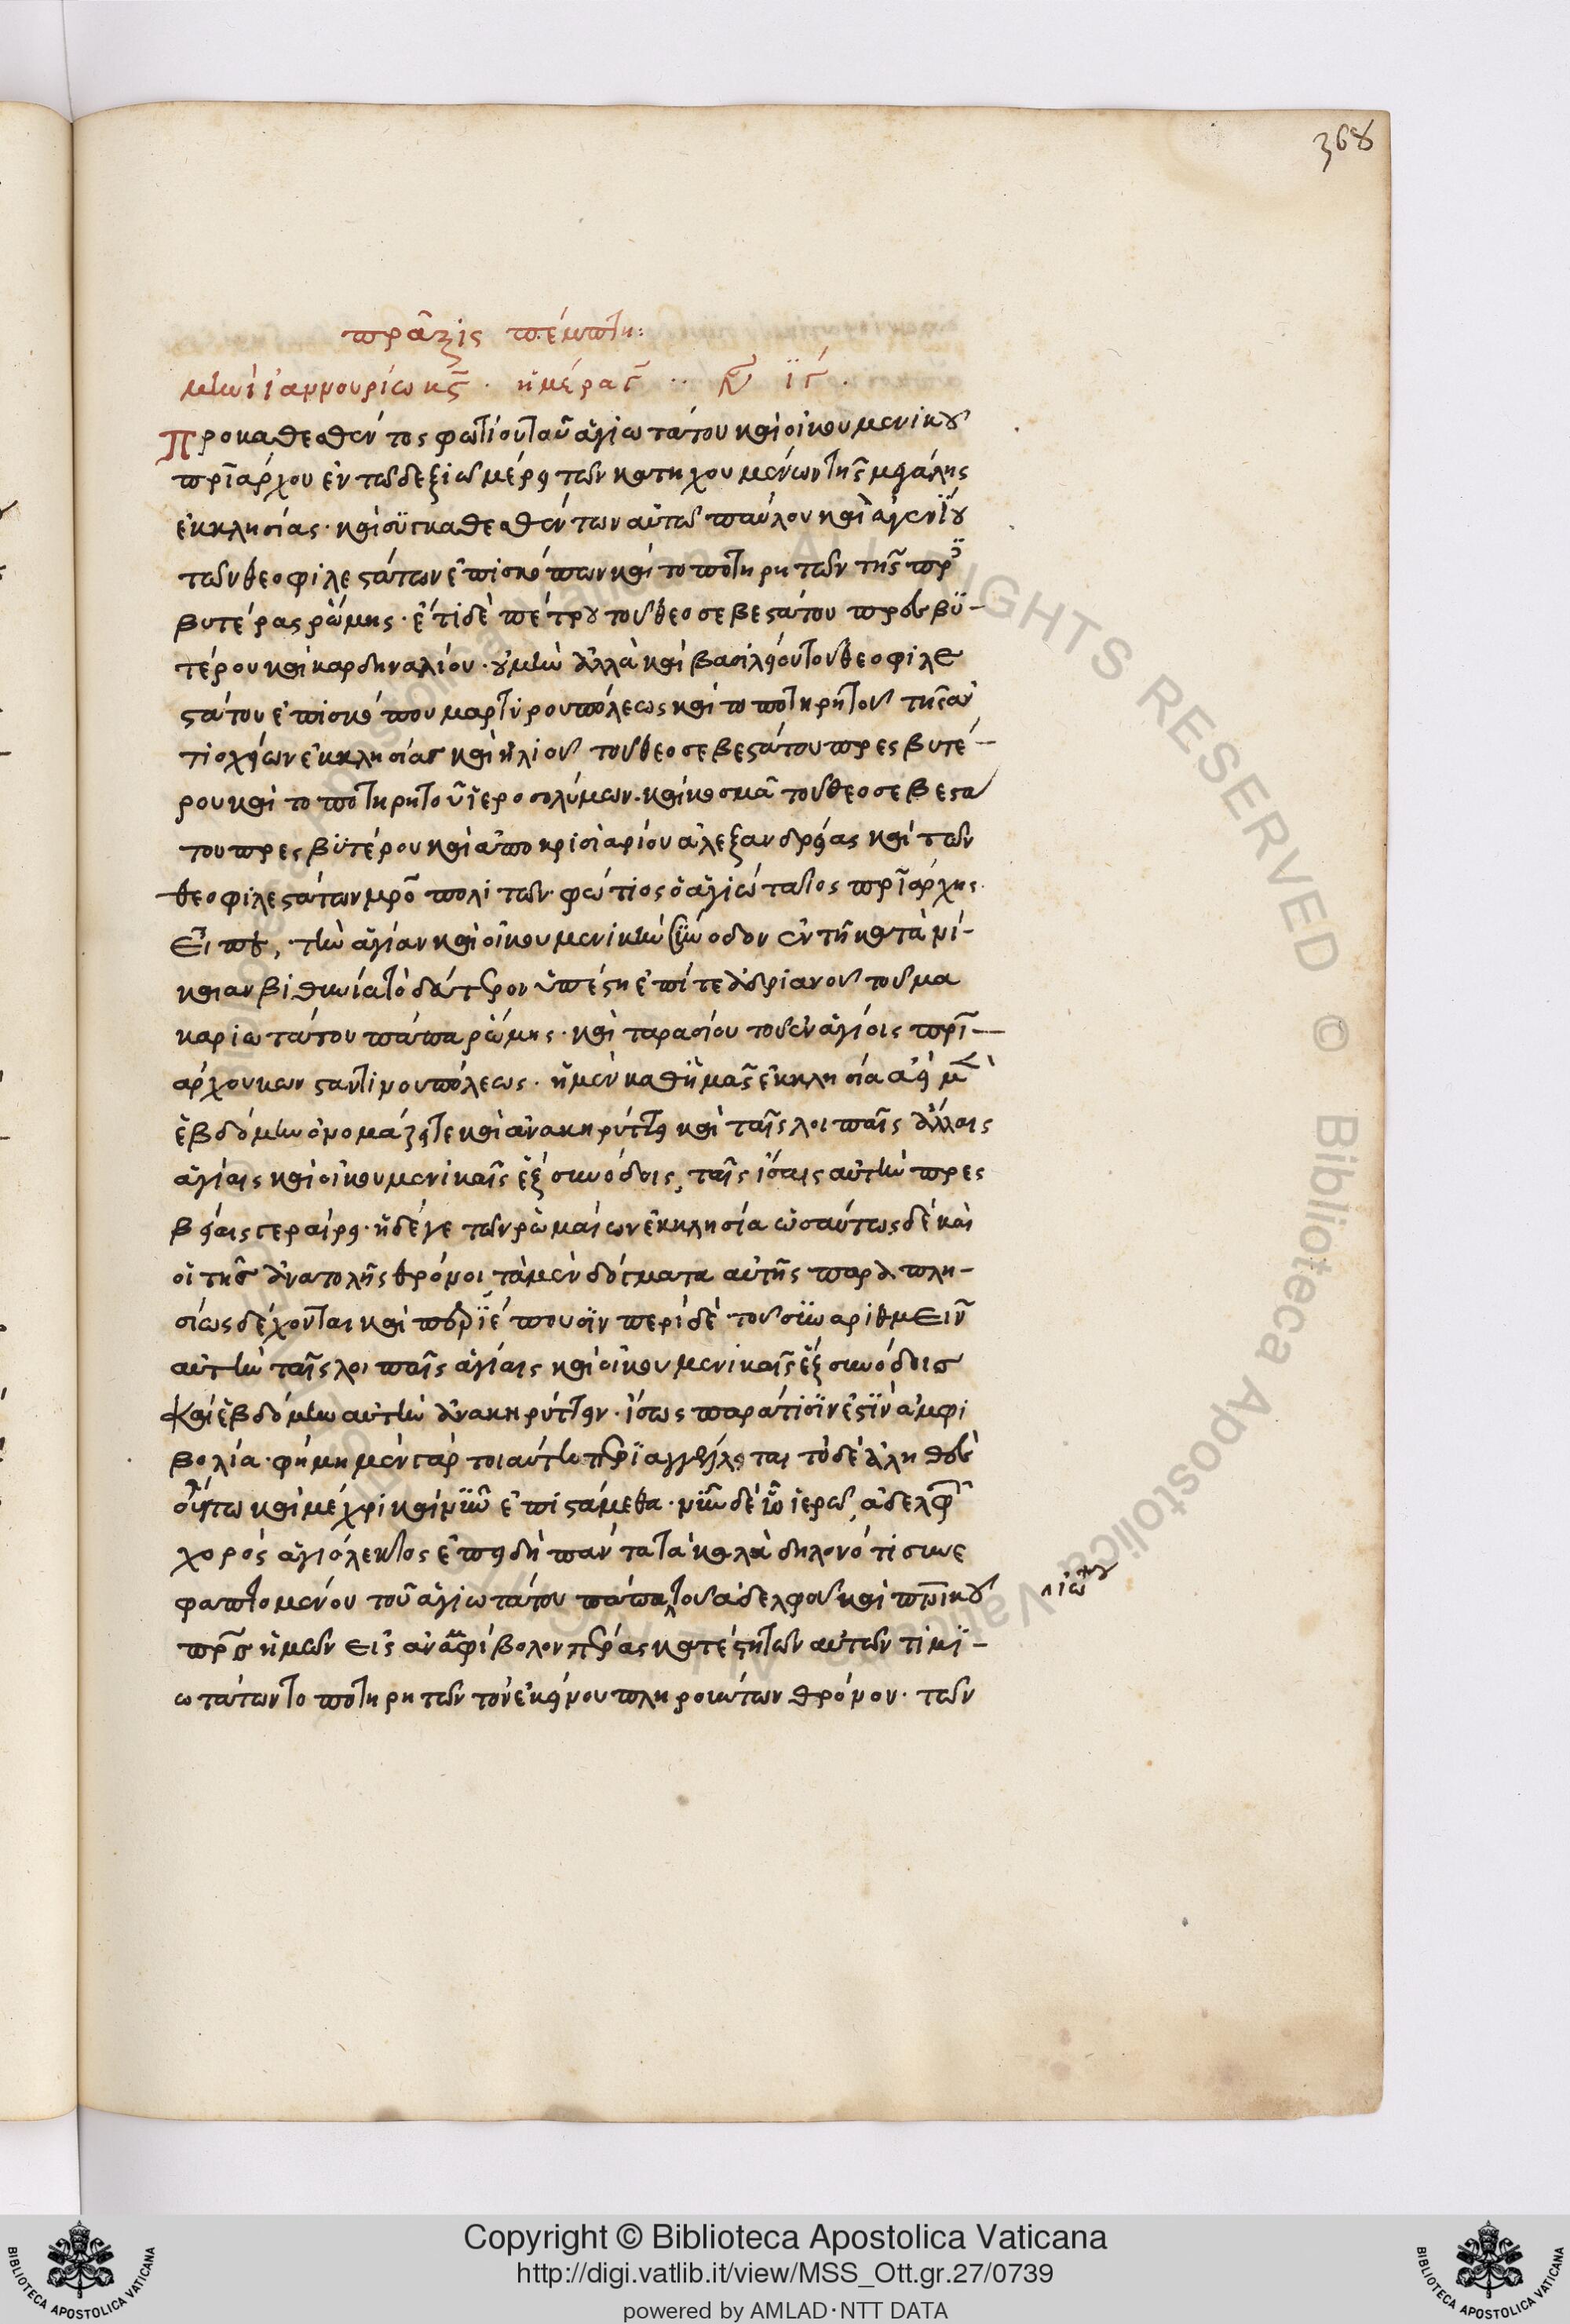 368
πρᾶξις πέμπτη:
μηνὶ ἰαννουρίω κϛ · ἡμέρα γ ·· ἰν ιγ ·
Προκαθεσθέντος φωτίου τοῦ ἁγιωτάτου καὶ οἰκουμενικοῦ
πριάρχου ἐν τῶ δεξιῶ μέρει τῶν κατηχουμένων τῆς μεγάλης
ἐκκλησίας · καὶ συγκαθεσθέντων αὐτῶ παύλου καὶ εὐγενίου
τῶν θεοφιλεστάτων ἐπισκόπων καὶ τοποτηρητῶν τῆς πρε
βυτέρας ῥώμης · ἔτι δὲ πέτρου τοῦ θεοσεβεστάτου πρεσβυ-
τέρου καὶ καρδηναλίου · οὐ μὴν ἀλλὰ καὶ βασιλείου τοῦ θεοφιλε
στάτου ἐπισκόπου μαρτυρουπόλεως καὶ τοποτηρητοῦ τῆς ἀν
τιοχείων ἐκκλησίας καὶ ἠλιοῦ τοῦ θεοσεβεστάτου πρεσβυτέ-
ρου καὶ τοποτηρητοῦ ἱεροσολύμων · καὶ κοσμᾶ τοῦ θεοσεβεστά
του πρεσβυτέρου καὶ ἀποκρισιαρίου ἀλεξανδρείας καὶ τῶν
θεοφιλεστάτων μροπολιτῶν · φώτιος ὁ ἁγιώτατος πριάρχης
εἶπεν, · τὴν ἁγίαν καὶ οἰκουμενικὴν σύνοδον ἐν τῆ κατὰ νί-
καιαν βιθυνία τὸ δεύτερον ὑπέστη ἐπί τε ἀδριανοῦ τοῦ μα
καριωτάτου πάπα ῥώμης · καὶ ταρασίου τοῦ ἐν ἁγίοις πρι-
άρχου κωνσταντινουπόλεως · ἡ μὲν καθ' ἡμᾶς ἐκκλησία ἀεὶ μὲν
ἑβδόμην ὀνομάζει τε καὶ ἀνακηρύττει καὶ ταῖς λοιπαῖς ἄλλαις
ἁγίαις καὶ οἰκουμενικαῖς ἓξ συνόδοις, ταῖς ἴσαις αὐτὴν πρεσ
βείαις γεραίρει · ἡ δέ γε τῶν ῥωμαίων ἐκκλησία ὡσαύτως δὲ καὶ
οἱ τῆς ἀνατολῆς θρόνοι, τὰ μὲν δόγματα αὐτῆς παραπλη-
σίως δέχονται καὶ πρεσβεύουσιν περὶ δὲ τοῦ συναριθμεῖν
αὐτὴν ταῖς λοιπαῖς ἁγίαις καὶ οἰκουμενικαῖς ἓξ συνόδοις
καὶ ἑβδόμην αὐτὴν ἀνακηρύττειν · ἴσως παρά τισίν ἐστὶν ἀμφι
βολία · φήμη μὲν γὰρ τοιαύτη περιαγγέλλεται τὸ δὲ ἀληθὲς
οὔπω καὶ μέχρι καὶ νῦν ἐπιστάμεθα · νῦν δὲ ὦ ἱερῶν ἀδελφῶν
χορὸς ἁγιόλεκτος ἐπειδὴ πάντα τὰ καλὰ δηλονότι συνε
φαπτομένου τοῦ ἁγιωτάτου πάπα ‸ τοῦ ἀδελφοῦ καὶ πνικοῦ
‸ ἰωννου
πρς ἡμῶν εἰς ἀναμφίβολον πέρας κατέστη τῶν αὐτῶν τιμι-
ωτάτων τοποτηρητῶν τὸν ἐκείνου πληρούντων θρόνον · τῶν
Copyright © Biblioteca Apostolica Vaticana
http://digi.vatlib.it/view/MSS_Ott.gr.27/0739
powered by AMLAD·NTT DATA